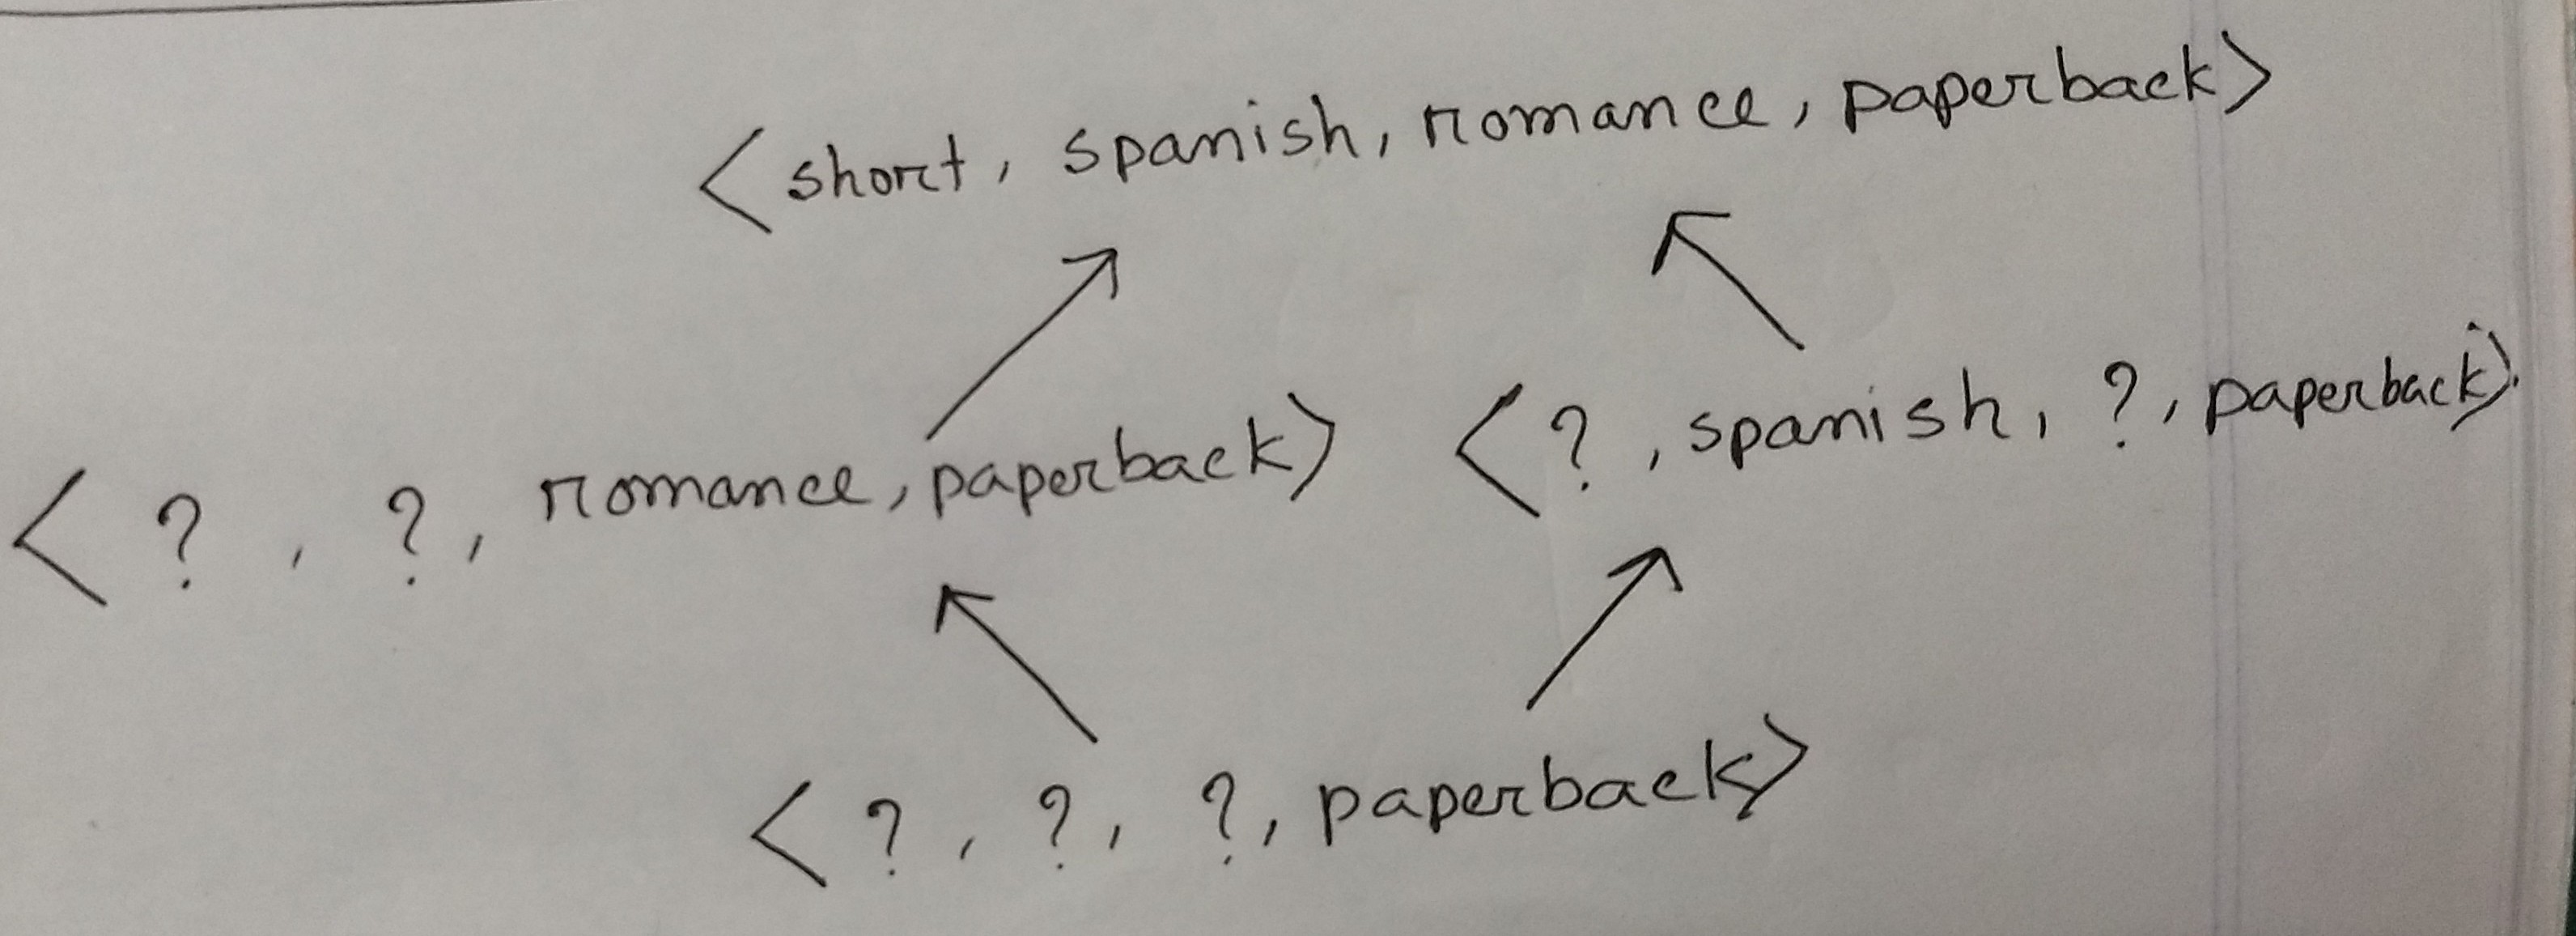 <short, spanish, romance, paperback>
<?, ?, romance, paperback> <?, spanish, ?, paperback>
<?, ?, ?, paperback>